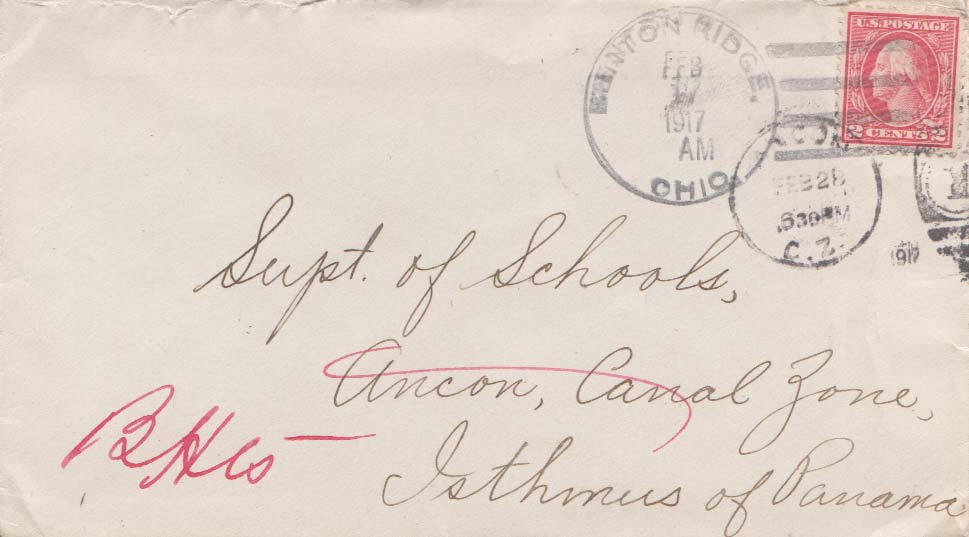 BENTON RIDGE,
FEB
17
1917
AM
OHIO.
U.S. POSTAGE
2 CENTS 2
FEB 28
630 PM
C.Z.
1917
Supt. of Schools,
Ancon, Canal Zone,
Isthmus of Panama